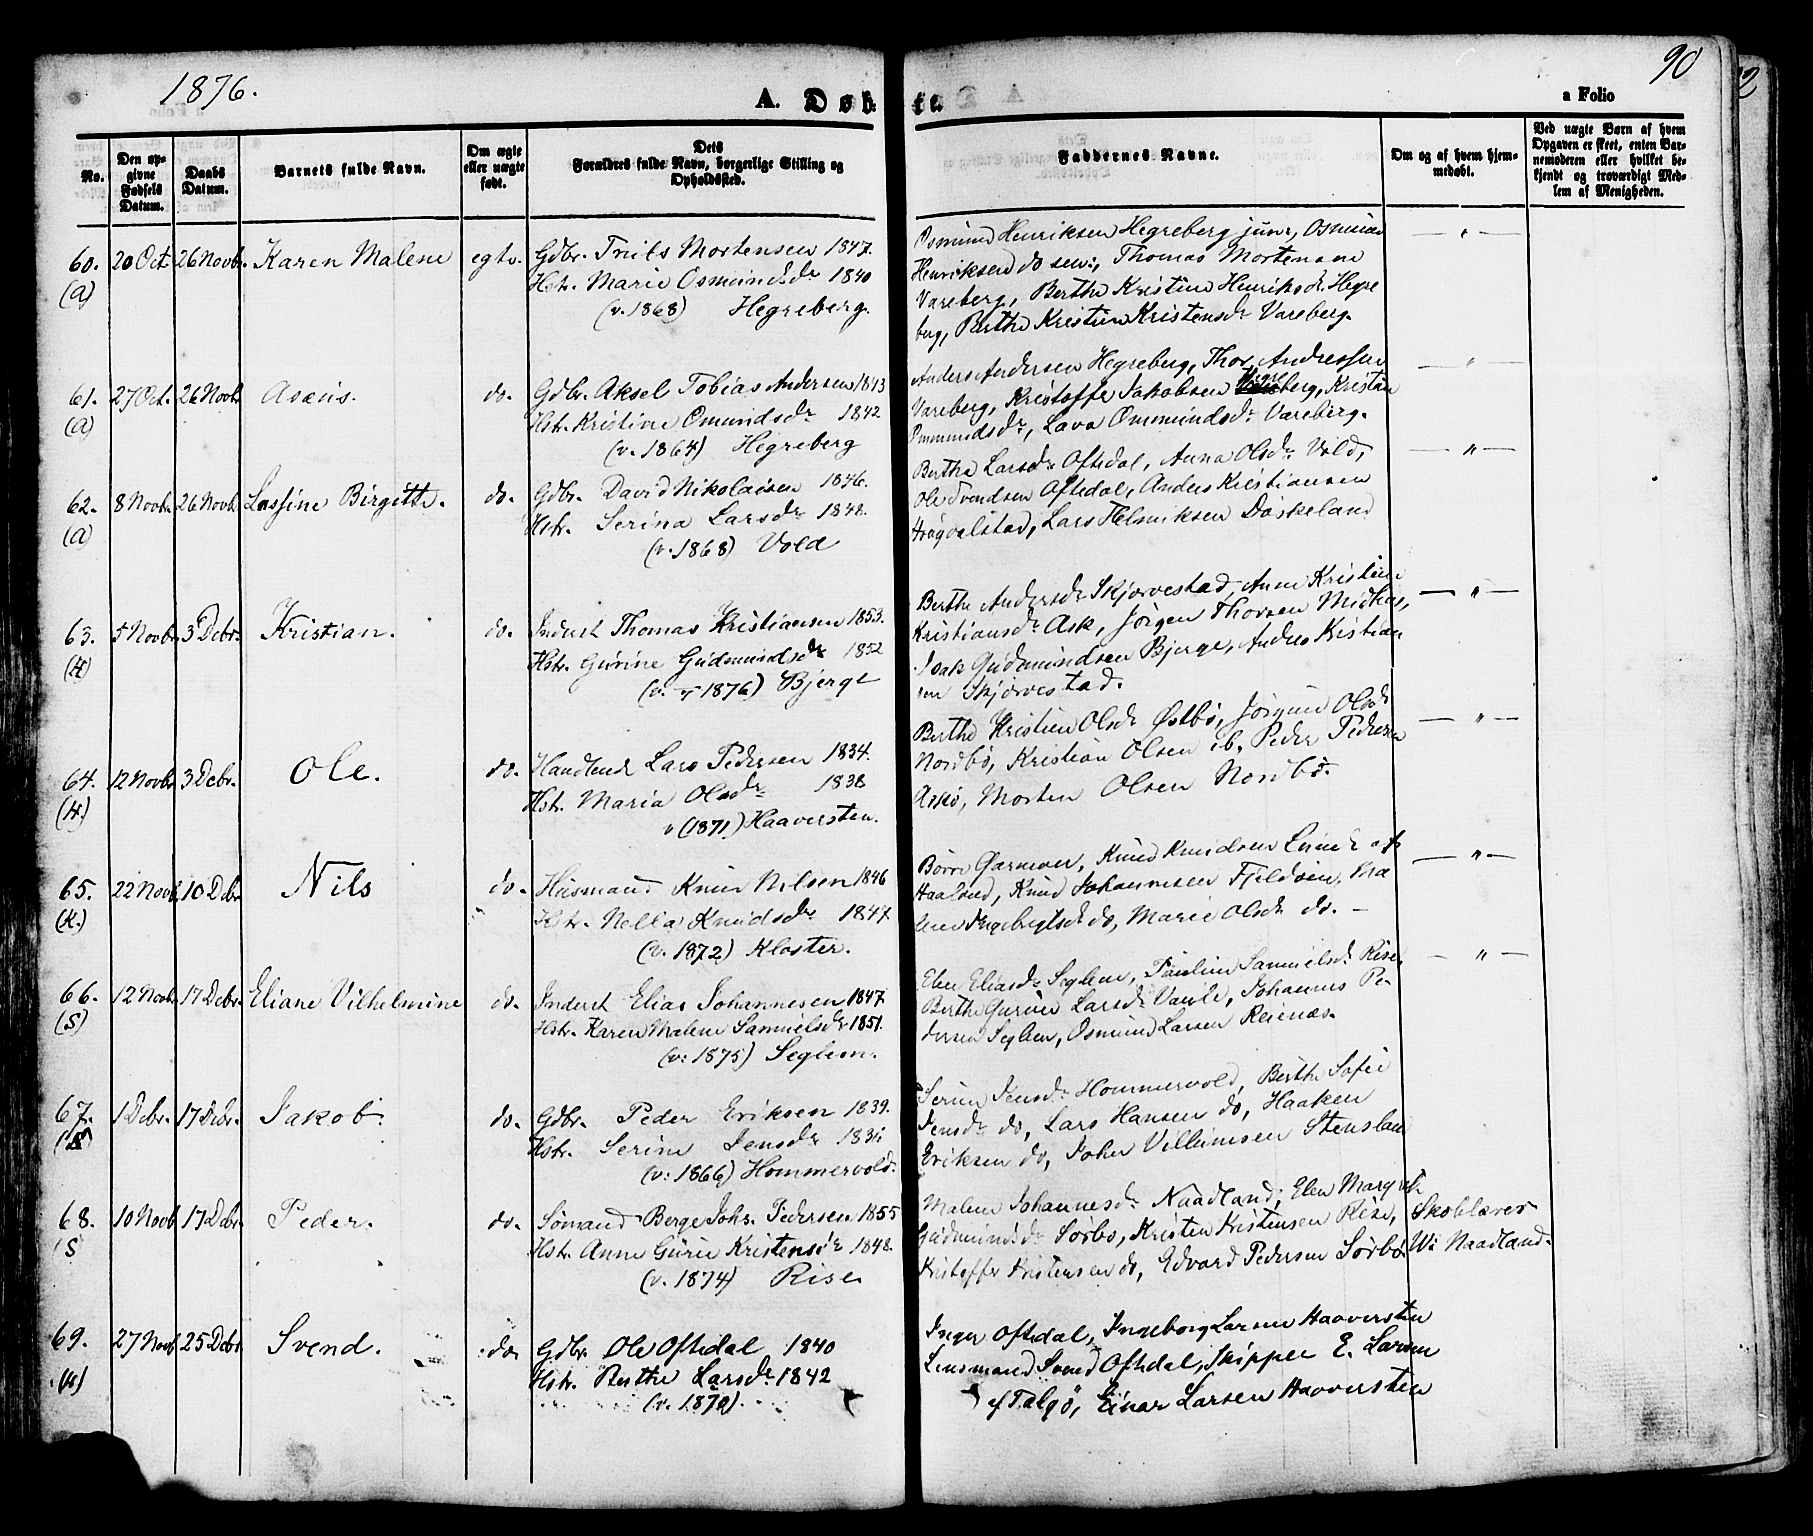 1876.
90
A. Døbte.
a Folio
No.
Den opgivne Fødsels Datum.
Daabs Datum.
Barnets fulde Navn.
Om ægte eller uægte født.
Dets Forældres fulde Navn, borgerlige Stilling og Opholdssted.
Faddernes Navne.
Om og af hvem hjemmedøbt.
Ved uægte Børn af hvem Opgaven er skeet, enten Barnemoderen eller hvilket bekjendt og troværdigt Medlem af Menigheden.
60. 20 Oct. 26 Novbr. Karen Malene egte. Gdbr. Mortensen 1847.
(A) Hstr. Marie Osmundsdr 1840
(v. 1868) Hegreberg.
Osmund Henriksen Hegreberg junr, Osmund
Henriksen do sen:, Thomas Mortensen
Vareberg, Berthe Kristine Henriksdr. Hegre
berg, Berthe Kristine Kristensdr Vareberg.
— " —
61. 27 Oct. 26 Novb. Asens. do. Gdbr. Aksel Tobias Andersen 1843
(A) Hstr. Kristine Omundsdr 1842
(v. 1864) Hegreberg
Anders Andersen Hegreberg, Thor Andreassen
Vareberg, Kristoffer Jakobsen Hegreberg, Kristen
Ommundsdr, Lava Ommundsdr Vareberg.
— " —
62. 8 Novbr. 26 Novb. Lassine Birgitte. do. Gdbr. David Nikolaisen 1846.
(A) Hstr. Serina Larsdr 1848.
(v. 1868) Vold
Berthe Larsdr Oftedal, Anna Olsdr Vold,
Ole Svendsen Oftedal, Anders Kristiansen
Lars Helmiksen Døskeland
— " —
63. 5 Novbr. 3 Debr. Kristian. do. Inderst Thomas Kristiansen 1853.
(H) Hstr. Gurine Gudmundsdr 1852
(v. 1876) Bjerge
Berthe Andersdr Skjørvestad, Anne Kristine
Kristiansdr Ask, Jørgen Thorsen
Isak Gudmundsen Bjerge, Andreas Kristian
sen Skjørvestad.
— " —
64. 12 Novbr. 3 Debr. Ole. do. Handlende Lars Pedersen 1834.
(H.) Hstr. Maria Olsdr 1838
v (1871) Haaversten.
Berthe Kristine Olsdr Østbø, Jørgine Olsdr
Nordbø, Kristian Olsen ib, Peder Pedersen
Askø, Morten Olsen Nordbø.
— " —
65. 22 Novb. 10 Debr. Nils do. Husmand Knud Nilsen 1846
(K.) Hstr. Nella Knudsdr 1847.
(v. 1872) Kloster.
Børre Garmoer, Knud Knudsen
Knud Johannesen Fjeldøen, Ma
lene Ingebrigtsdr do, Marie Olsdr do. –
— " —
66. 12 Novbr. 17 Debr. Eliane Vilhelmine do. Inderst Elias Johannesen 1847
(S) Hstr. Karen Malene Samuelsdr 1851.
(v: 1875) Seglem.
Elen Eliasdr Seglem, Pauline Samuelsdr Rise,
Berthe Gurine Larsdr Johannes Pe-
dersen Seglem, Osmund Larsen Reienæs.
— " —
67. 1 Debr. 17 Debr. Jakob. do. Gdbr. Peder Eriksen 1839.
(S) Hstr. Serine Jensdr
(v: 1866) Hommervold.
Serine Jensdr. Hommervold, Berthe Sofie
Jensdr do, Lars Hansen do, Haaken
Eriksen do, John Villumsen Stensland
68. 10 Novb 17 Debr. Peder. do. Sømand Berge Johs. Pedersen 1855
(S Hstr. Anne Gurie Kristensdr 1848.
(v. 1874) Rise
Malene Johannesdr Naadland, Elen Margrete
Gudmundsdr Sørbø, Kristen Kristensen Rise,
Kristoffer Kristensen do, Edvard Pedersen Sørbø.
Skolelærer
Wi Naadland.
69. 27 Novb 25 Debr. Svend. do. Gdbr. Ole Oftedal 1840
(H) Hstr. Berthe Larsdr 1842
(v. 1870).
Inger Oftedal, Ingeborg Larsen Haaversten
Lensmand Svend Oftedal, Skipper E. Larsen
af Talgø, Einar Larsen Haaversten